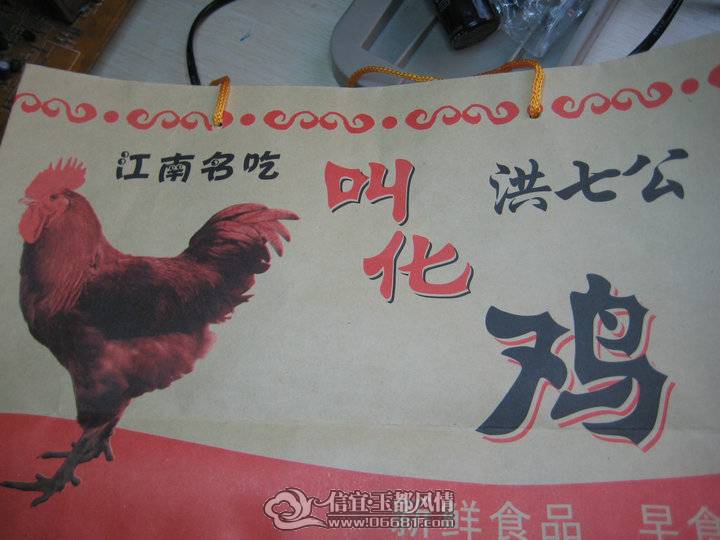 江南名吃
叫化
洪七公
鸡
新鲜食品 早食
信宜·玉都风情
www.06681.com